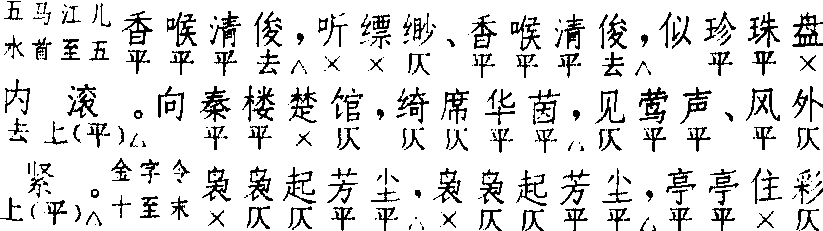 五马江儿 香喉清俊，听缥缈、香喉清俊，似珍珠盘
水首至五 平平平去△××仄 平平平去△ 平平×
内滚。向秦楼楚馆，绮席华茵，见莺声、风外
去上(平)△ 平平×仄 仄仄平平△仄平平 平仄
紧。金字令 袅袅起芳尘，袅袅起芳尘，亭亭住彩
上(平)△十至末 ×仄仄平平 ×仄仄平平△平平×仄